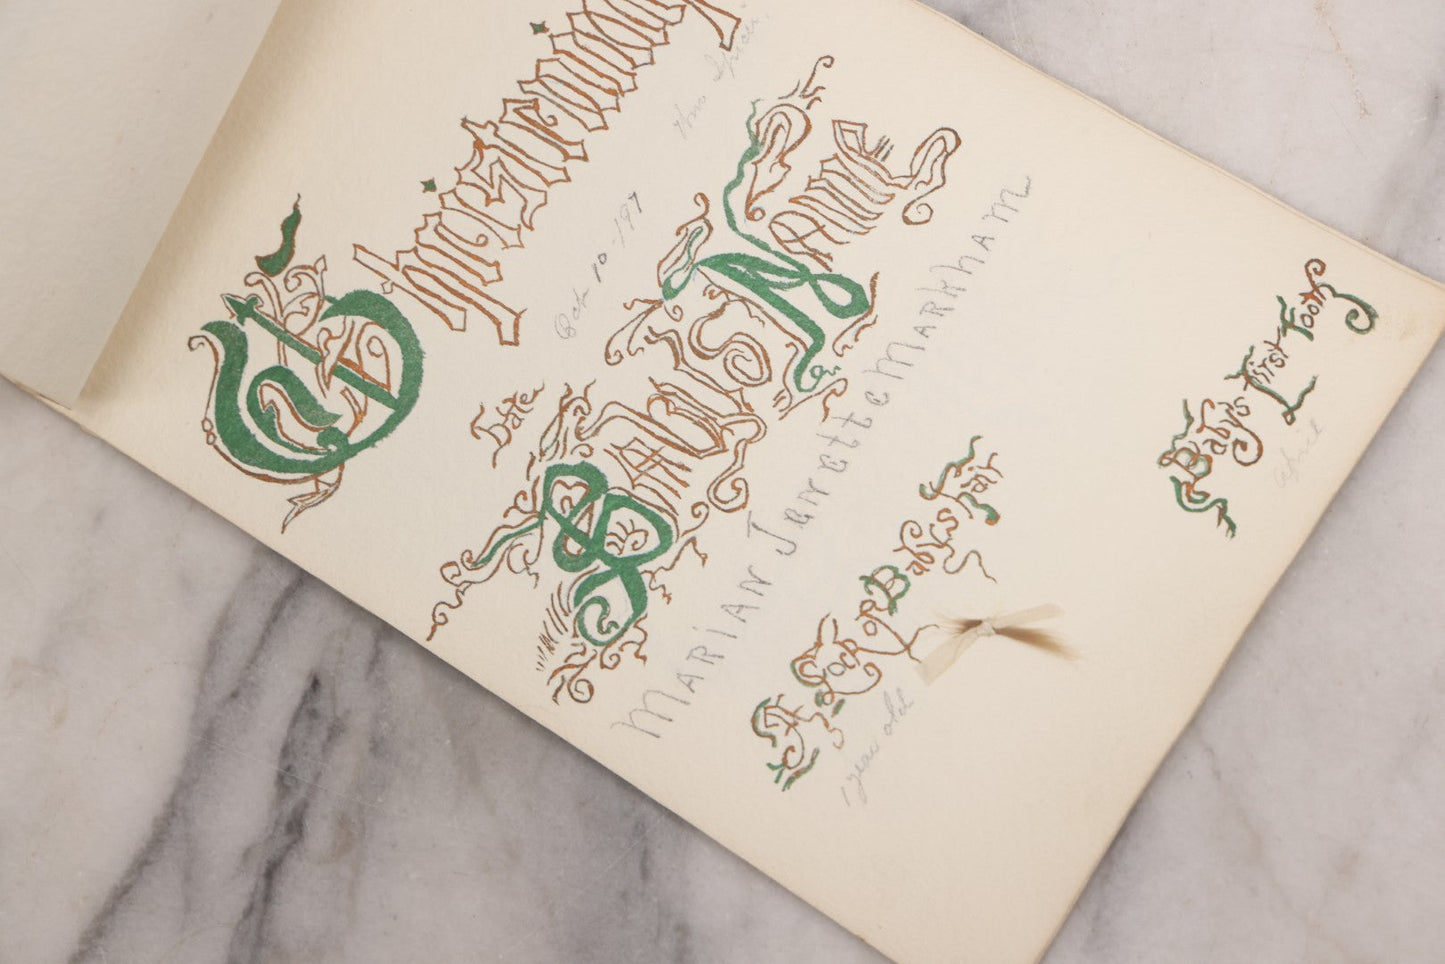 Christening
Date Oct 10-197
Babies Name
Marian Janette Markham
A Lock of Babyes hair
1 year old
Baby's First Tooth
April